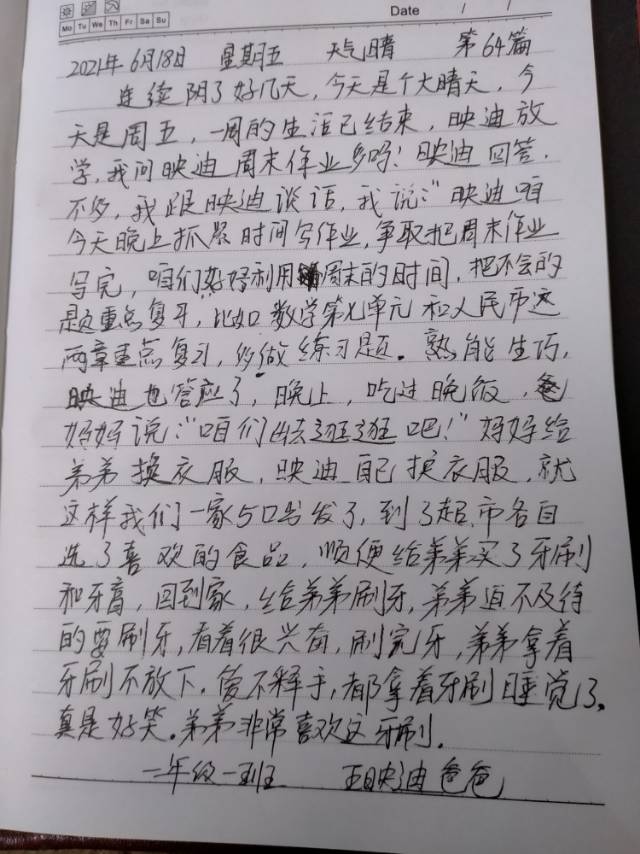 Mo Tu We Th Fr Sa Su
Date / /
2021年6月18日 星期五 天气晴 第64篇
连续阴了好几天，今天是个大晴天，今
天是周五，一周的生活已结束，映迪放
学，我问映迪周末作业多吗！映迪回答，
不多，我跟映迪谈话，我说：“映迪咱
今天晚上抓紧时间写作业，争取把周末作业
写完，咱们好好利用周末的时间，把不会的
题重点复习，比如数学第七单元和人民币这
两章重点复习，多做练习题。熟能生巧，
映迪也答应了，晚上，吃过晚饭，爸
妈妈说：“咱们出去逛逛吧！”妈妈给
弟弟换衣服，映迪自己换衣服，就
这样我们一家5口出发了，到了超市各自
选了喜欢的食品，顺便给弟弟买了牙刷
和牙膏，回到家，给弟弟刷牙，弟弟迫不及待
的要刷牙，看着很兴奋，刷完牙，弟弟拿着
牙刷不放下，爱不释手，都拿着牙刷睡觉了。
真是好笑。弟弟非常喜欢这牙刷。
一年级一班 王映迪爸爸